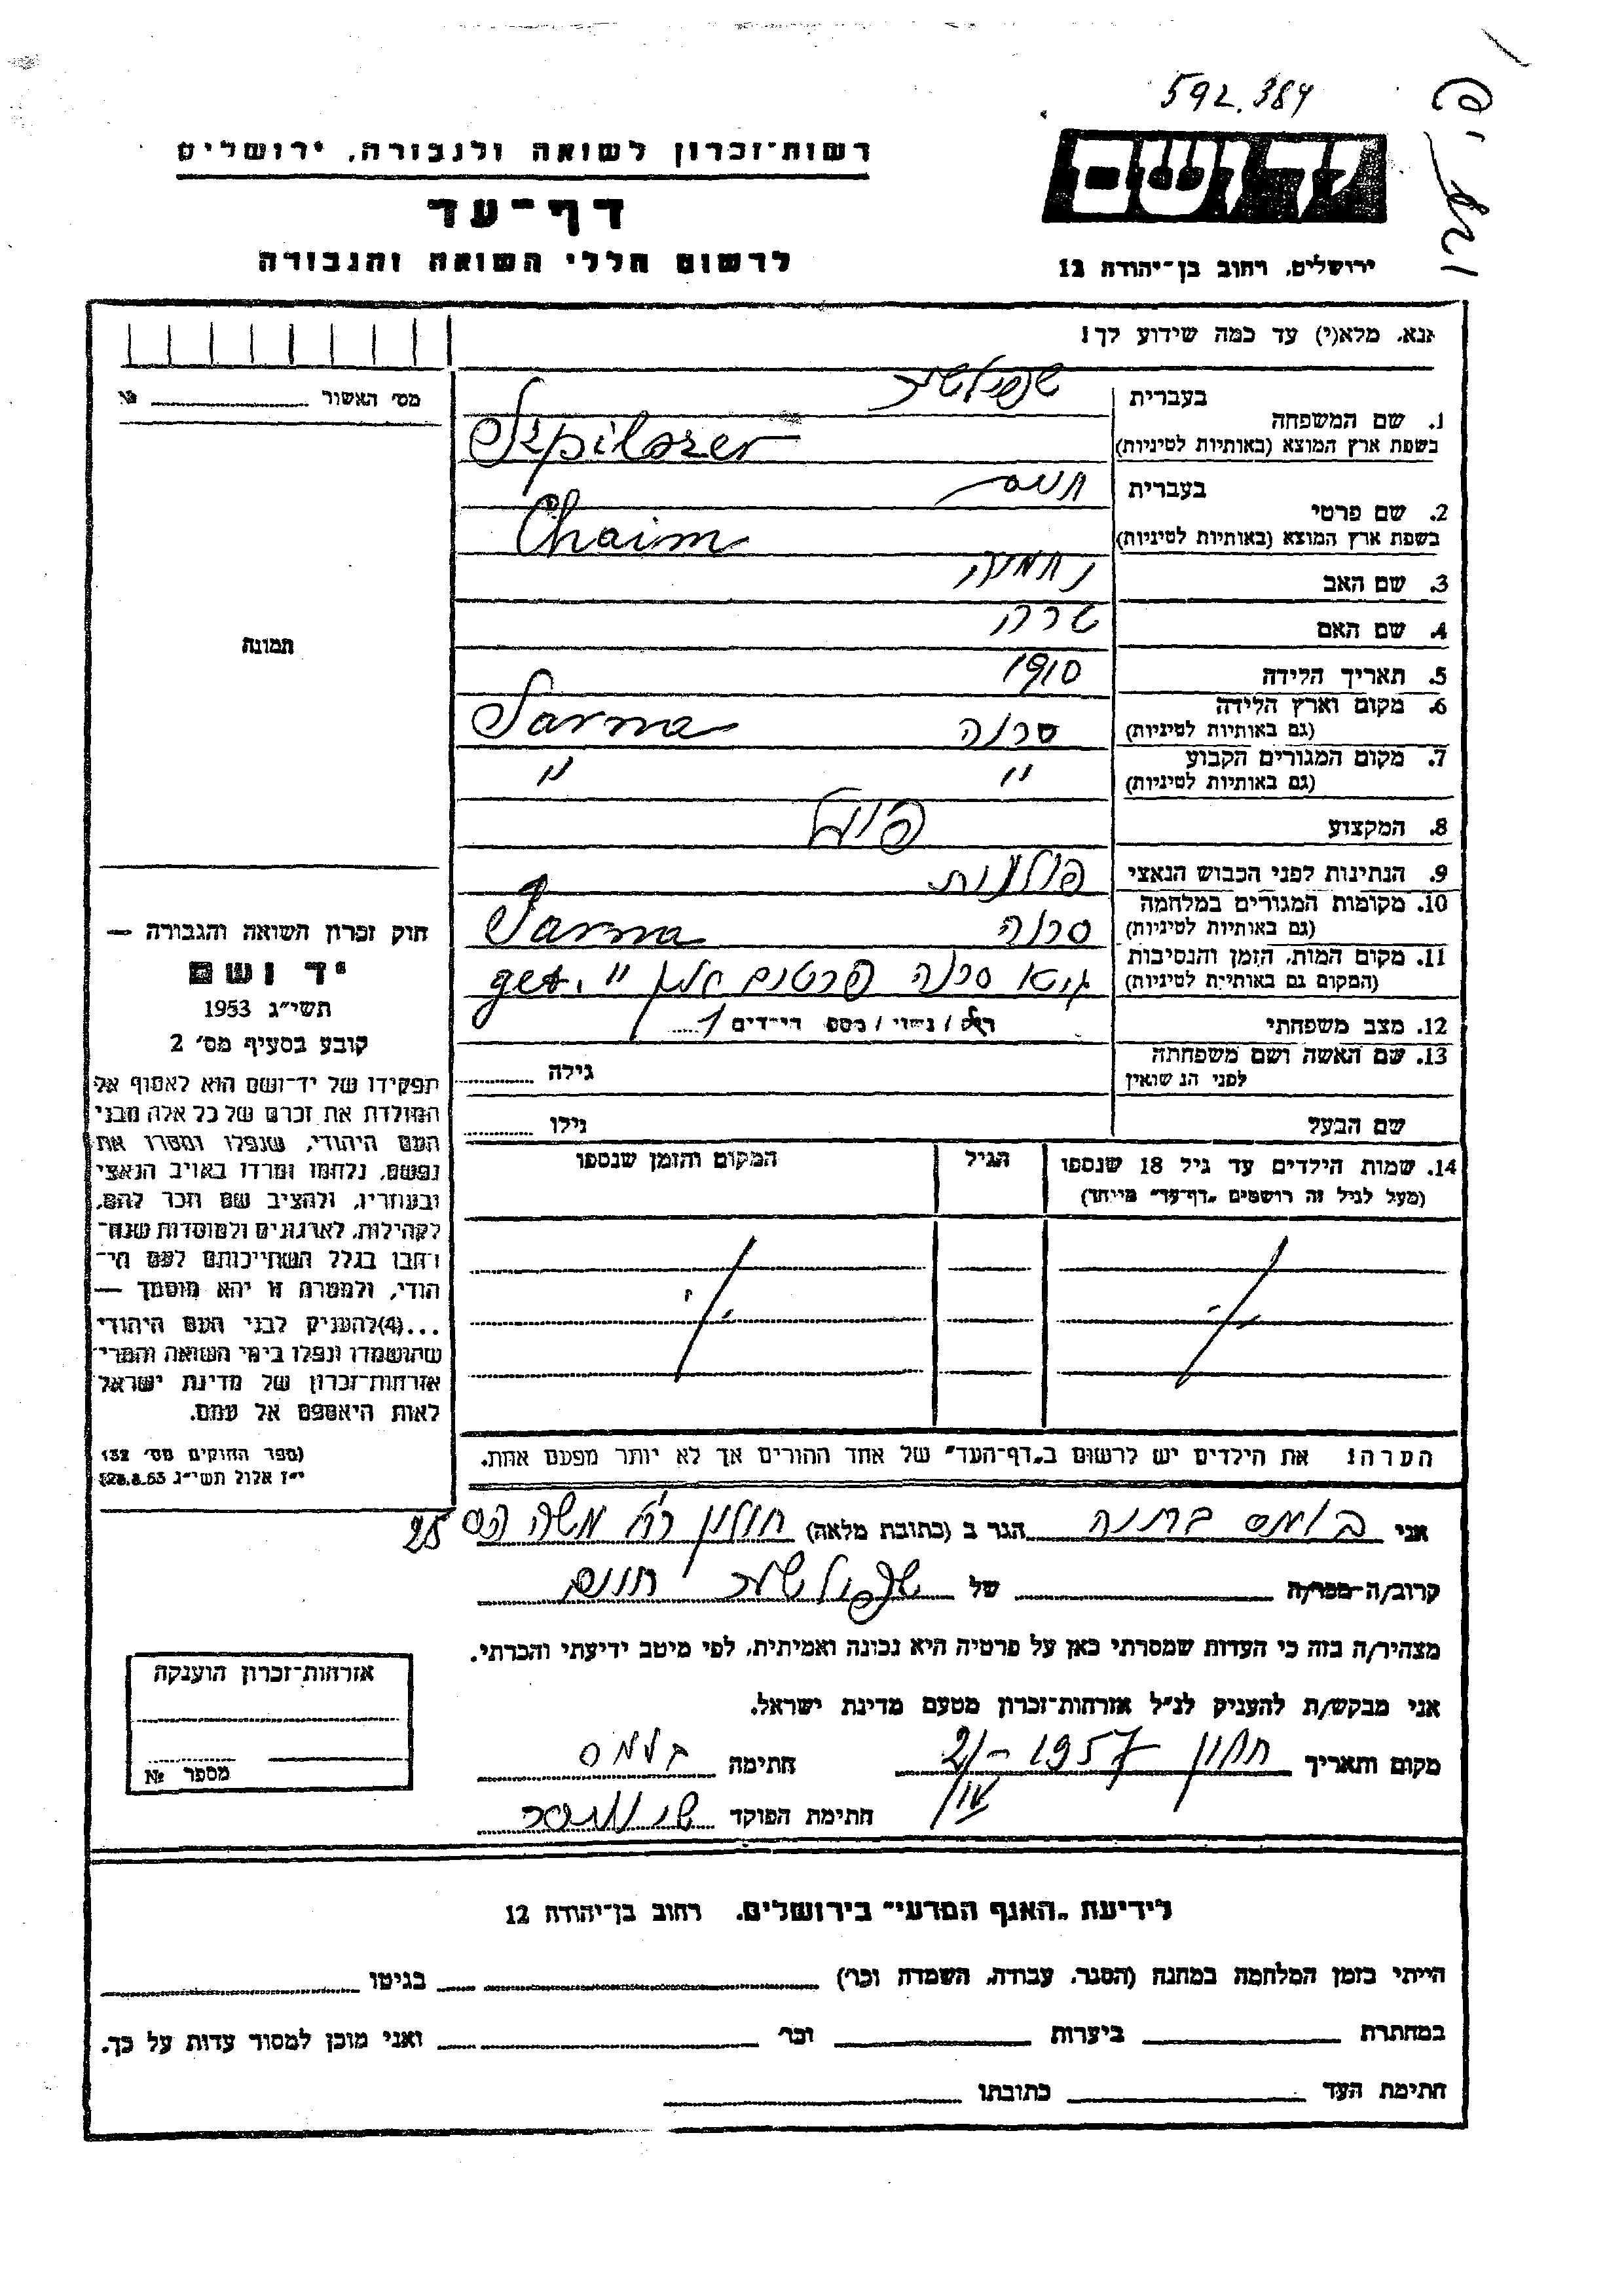 592.384
רשות־זכרון לשואה ולגבורה, ירושלים
דף־עד
לרשום חללי השואה והגבורה
ידושם
ירושלים, רחוב בן־יהודה 12
אנא, מלא(י) עד כמה שידוע לך!
מס׳ האשור № 
1. שם המשפחה בעברית
בשפת ארץ המוצא (באותיות לטיניות) Szpilszer
2. שם פרטי בעברית חיים
בשפת ארץ המוצא (באותיות לטיניות) Chaim
3. שם האב נחמיה
4. שם האם שרה
5. תאריך הלידה 1910
6. מקום וארץ הלידה (גם באותיות לטיניות) סרנה Sarna
7. מקום המגורים הקבוע (גם באותיות לטיניות) " "
8. המקצוע
9. הנתינות לפני הכבוש הנאצי פולנית
10. מקומות המגורים במלחמה (גם באותיות לטיניות) סרנה Sarna
11. מקום המות, הזמן והנסיבות (המקום גם באותיות לטיניות) גיא סרנה פרטיזנים get. "
12. מצב משפחתי רוק / נשוי / מספר הילדים
13. שם האשה ושם משפחתה לפני הנשואין גילה
שם הבעל גילו
14. שמות הילדים עד גיל 18 שנספו הגיל המקום והזמן שנספו
(מעל לגיל זה רושמים „דף־עד" מיוחד)
הערה: את הילדים יש לרשום ב„דף־העד" של אחד ההורים אך לא יותר מפעם אחת.
תמונה
חוק זכרון השואה והגבורה —
יד ושם
תשי״ג 1953
קובע בסעיף מס׳ 2
תפקידו של יד־ושם הוא לאסוף אל
המולדת את זכרם של כל אלה מבני
העם היהודי, שנפלו ומסרו את
נפשם, נלחמו ומרדו באויב הנאצי
ובעוזריו, ולהציב שם וזכר להם,
לקהילות, לארגונים ולמוסדות שנח־
רבו בגלל השתייכותם לעם הי־
הודי, ולמטרה זו יהא מוסמך —
...(4)להעניק לבני העם היהודי
שהושמדו ונפלו בימי השואה והמרי
אזרחות־זכרון של מדינת ישראל
לאות היאספם אל עמם.
(ספר החוקים מס׳ 132
י״ז אלול תשי״ג 28.8.53)
אני הגר ב (כתובת מלאה) חולון רח׳ משה הס 25
קרוב/ה־מכר/ה של חיים
מצהיר/ה בזה כי העדות שמסרתי כאן על פרטיה היא נכונה ואמיתית, לפי מיטב ידיעתי והכרתי.
אני מבקש/ת להעניק לנ״ל אזרחות־זכרון מטעם מדינת ישראל.
מקום ותאריך חולון 21/IV - 1957 חתימה
חתימת הפוקד
אזרחות־זכרון הוענקה
מספר №
לידיעת „האגף המדעי" בירושלים, רחוב בן־יהודה 12
הייתי בזמן המלחמה במחנה (הסגר, עבודה, השמדה וכו׳) בגיטו
במחתרת ביערות וכו׳ ואני מוכן למסור עדות על כך.
חתימת העד כתובתו